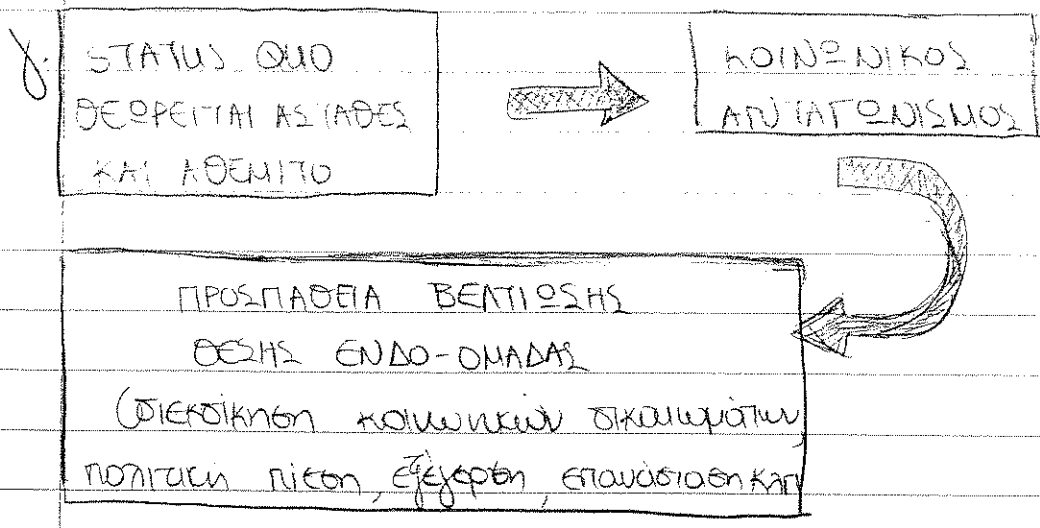 γ. STATUS QUO
ΘΕΩΡΕΙΤΑΙ ΑΣΤΑΘΕΣ
ΚΑΙ ΑΘΕΜΙΤΟ
ΚΟΙΝΩΝΙΚΟΣ
ΑΝΤΑΓΩΝΙΣΜΟΣ
ΠΡΟΣΠΑΘΕΙΑ ΒΕΛΤΙΩΣΗΣ
ΘΕΣΗΣ ΕΝΔΟ-ΟΜΑΔΑΣ
(διεκδίκηση κοινωνικών δικαιωμάτων,
πολιτική πίεση, εξέγερση, επανάσταση κλπ)